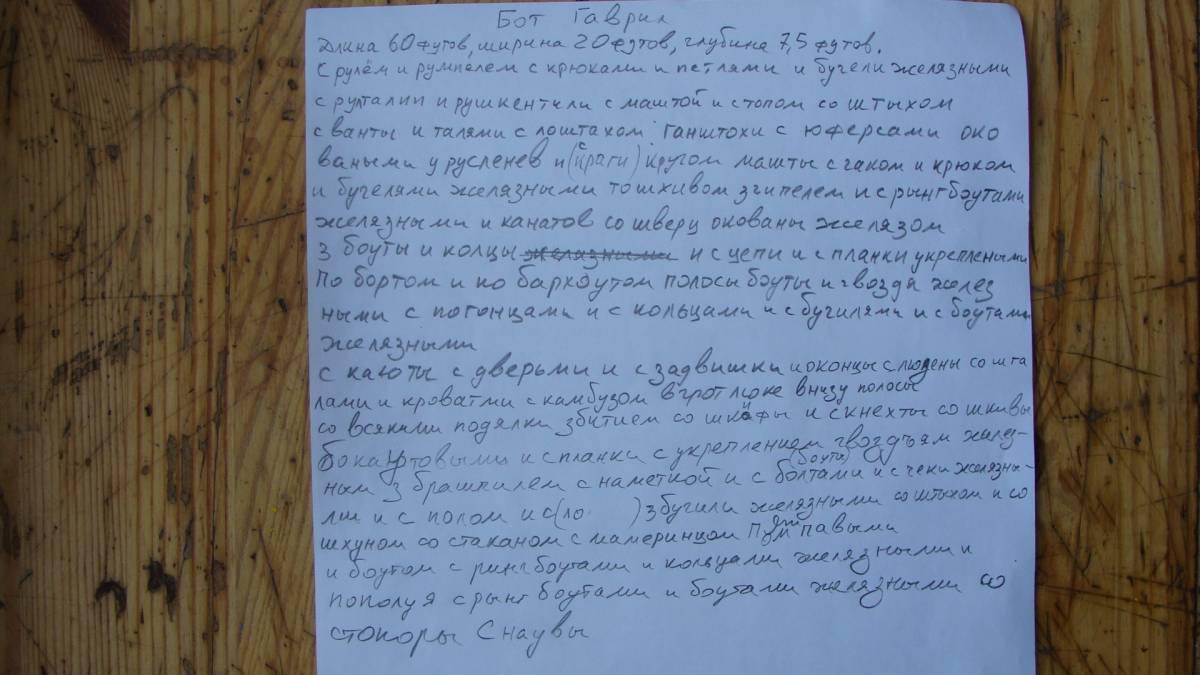 Бот Гаврил
Длина 60 футов, ширина 20 футов, глубина 7,5 футов.
С рулём и румпелем с крюками и петлями и бугели желязными
с руталии и рушкентили с маштой и стопом со штыхом
с ванты и талями с лоштахом ганштохи с юферсами око
ваными у русленев и (с краги) кругом машты с гаком и крюком
и бугелями желязными то шхивом з гипелем и с рынгбоутами
желязными и канатов со шверц окованы желязом
з боуты и колцы желязными и с цепи и с планки укреплеными
По бортом и по бархоутом полосы боуты и гвозди желез
ными с погонцами и с кольцами и с бугилями и с боутами
желязными
с каюты с дверьми и с задвишки и оконцы слюдены со шта
лами и кроватми с камбузом в грот люке внизу полосы
со всякими поделки збитием со шкафы и с кнехты со шкивы
бокаутовыми и с планки с укреплением гвоздъям желез-
ным з брашпилем с наметкой и с болтами (боути) и с чеки желязны-
ми и с полом и с (ло ) з бугили желязными со штыхом и со
шхуном со стаканом с мамеринцом
и боутом с рингбоутами и кольцами желязными и
пополуя с рынг боутами и боутами желязными со
стопоры С наувы